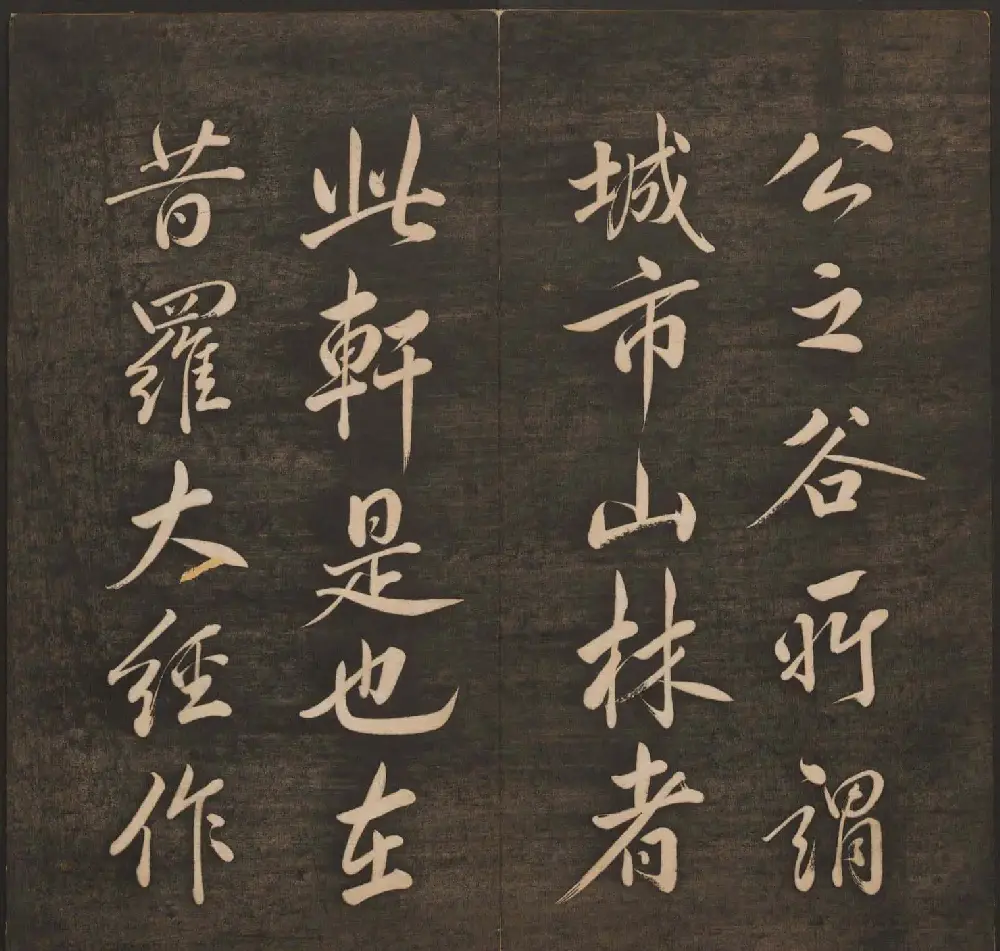 公之谷所謂
城市山林者
此軒是也在
昔羅大經作